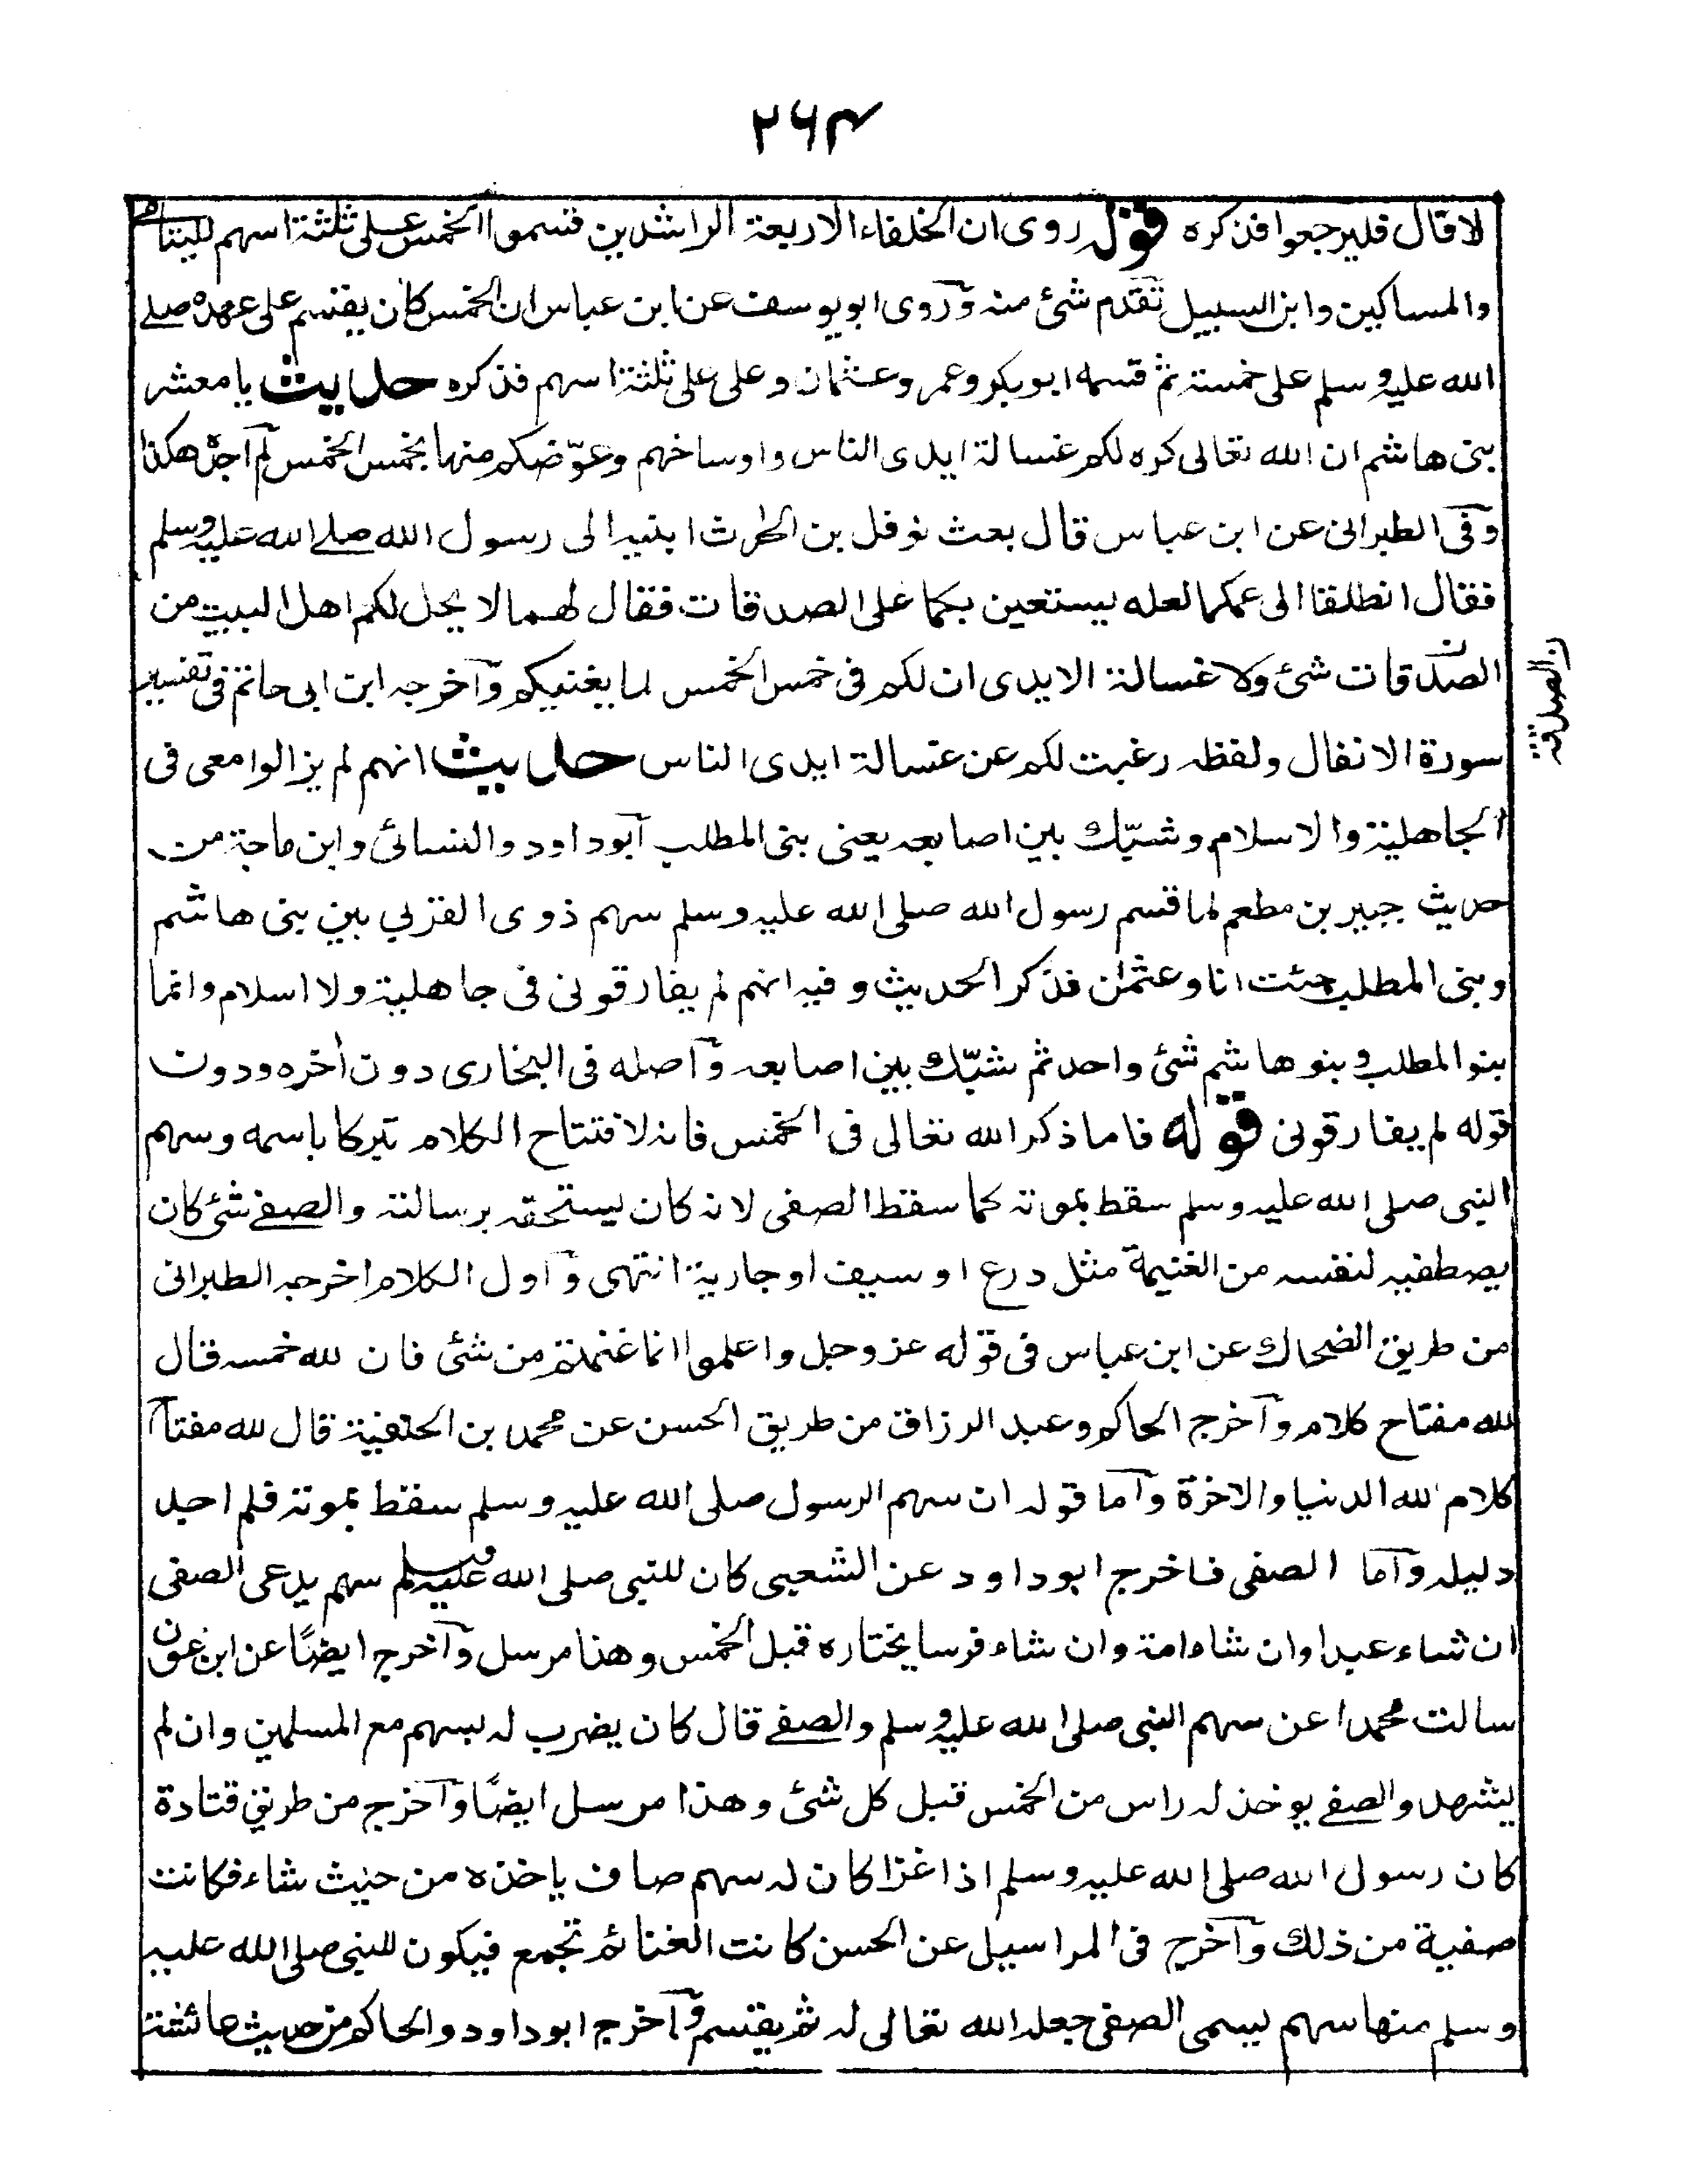 ۲۶۴
لا قال فليرجعوا فذكره قوله روى ان الخلفاء الاربعة الراشدين قسموا الخمس على ثلثة اسهم لليتامى
والمساكين وابن السبيل تقدم شئ منه وروى ابو يوسف عن ابن عباس ان الخمس كان يقسم على عهده صلے
الله عليه وسلم على خمسة ثم قسمه ابو بكر وعمر وعثمان وعلى على ثلثة اسهم فذكره حديث يا معشر
بنى هاشم ان الله تعالى كره لكم غسالة ايدى الناس واوساخهم وعوّضكم منها بخمس الخمس لم اجده هكذا
وفى الطبرانى عن ابن عباس قال بعث نوفل بن الحٰرث ابنيه الى رسول الله صلے الله عليه وسلم
فقال انطلقا الى عمكما لعله يستعين بكما على الصدقات فقال لهما لا يحل لكم اهل البيت من
الصدقات شئ ولا غسالة الايدى ان لكم فى خمس الخمس لما يغنيكم واخرجه ابن ابى حاتم فى تفسير
ن الصدقة
سورة الانفال ولفظه رغبت لكم عن غسالة ايدى الناس حديث انهم لم يزالوا معى فى
الجاهلية والاسلام وشبّك بين اصابعه يعنى بنى المطلب ابو داود والنسائى وابن ماجة من
حديث جبير بن مطعم لما قسم رسول الله صلى الله عليه وسلم سهم ذوى القربى بين بنى هاشم
وبنى المطلب جئت انا وعثمٰن فذكر الحديث وفيه انهم لم يفارقونى فى جاهلية ولا اسلام وانما
بنو المطلب وبنو هاشم شئ واحد ثم شبّك بين اصابعه واصله فى البخارى دون اٰخره ودون
قوله لم يفارقونى قوله فاما ذكر الله تعالى فى الخمس فانه لافتتاح الكلام تبركا باسمه وسهم
النبى صلى الله عليه وسلم سقط بموته كما سقط الصفى لانه كان يستحقه برسالته والصفے شئ كان
يصطفيه لنفسه من الغنيمة مثل درع او سيف او جارية انتهى واول الكلام اخرجه الطبرانى
من طريق الضحاك عن ابن عباس فى قوله عز وجل واعلموا انما غنمتم من شئ فان لله خمسه قال
لله مفتاح كلام واخرج الحاكم وعبد الرزاق من طريق الحسن عن محمد بن الحنفية قال لله مفتاح
كلام لله الدنيا والاخرة واما قوله ان سهم الرسول صلى الله عليه وسلم سقط بموته فلم اجد
دليله واما الصفى فاخرج ابو داود عن الشعبى كان للنبى صلى الله عليه وسلم سهم يدعى الصفى
ان شاء عبدا وان شاء امة وان شاء فرسا يختاره قبل الخمس وهذا مرسل واخرج ايضًا عن ابن عون
سالت محمدا عن سهم النبى صلى الله عليه وسلم والصفے قال كان يضرب له بسهم مع المسلمين وان لم
يشهد والصفے يوخذ له راس من الخمس قبل كل شئ وهذا مرسل ايضًا واخرج من طريق قتادة
كان رسول الله صلى الله عليه وسلم اذا غزا كان له سهم صاف ياخذه من حيث شاء فكانت
صفية من ذلك واخرج فى المراسيل عن الحسن كانت الغنائم تجمع فيكون للنبى صلى الله عليه
وسلم منها سهم يسمى الصفى جعله الله تعالى له ثم يقسم واخرج ابو داود والحاكم من حديث عائشة